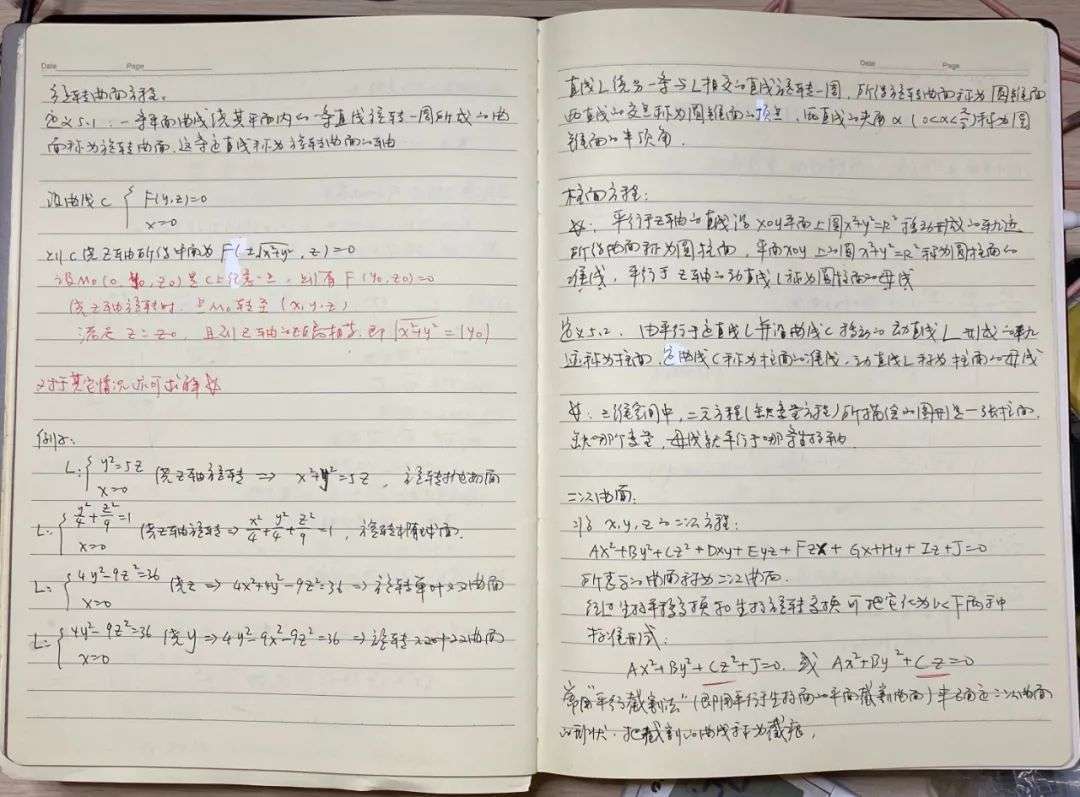 Date Page
旋转曲面方程.
定义5.1. 一条平面曲线绕其平面内的一条直线旋转一周所成的曲
面称为旋转曲面, 这条定直线称为旋转曲面的轴
设曲线 C { F(y,z)=0
x=0
则 C 绕 Z 轴所得曲面为 F(±√x²+y², z)=0
设 M₀(0, y₀, z₀) 是 C 上任意一点, 则有 F(y₀, z₀)=0
绕 Z 轴旋转时, 点 M₀ 转至 (x, y, z)
满足 z=z₀, 且到 Z 轴的距离相等, 即 √x²+y² = |y₀|
对于其它情况亦可求解
例如:
L: { y²=5z 绕 Z 轴旋转 ⇒ x²+y²=5z, 旋转抛物面
x=0
L: { y²/4+z²/9=1 绕 Z 轴旋转 ⇒ x²/4+y²/4+z²/9=1, 旋转椭球面.
x=0
L: { 4y²-9z²=36 绕 Z ⇒ 4x²+4y²-9z²=36 ⇒ 旋转单叶双曲面
x=0
L: { 4y²-9z²=36 绕 y ⇒ 4y²-9x²-9z²=36 ⇒ 旋转双叶双曲面
x=0
Date Page
直线 L 绕另一条与 L 相交的直线旋转一周, 所得旋转曲面称为圆锥面
两直线的交点称为圆锥面的顶点, 两直线的夹角 α (0<α<π/2) 称为圆
锥面的半顶角.
柱面方程:
平行于 Z 轴的直线沿 xoy 平面上圆 x²+y²=R² 移动形成的轨迹
所得曲面称为圆柱面, 平面 xoy 上的圆 x²+y²=R² 称为圆柱面的
准线, 平行于 Z 轴的动直线 L 称为圆柱面的母线
定义5.2. 由平行于定直线 L 并沿曲线 C 移动的动直线 L 形成的轨
迹称为柱面, 定曲线 C 称为柱面的准线, 动直线 L 称为柱面的母线
三维空间中, 二元方程(缺变量方程)所描绘的图形是一张柱面,
缺哪个变量, 母线就平行于哪条坐标轴
二次曲面.
x, y, z 的二次方程:
Ax²+By²+Cz²+Dxy+Eyz+Fzx+Gx+Hy+Iz+J=0
所表示的曲面称为二次曲面.
经过坐标平移变换和坐标旋转变换可把它化为以下两种
标准形式:
Ax²+By²+Cz²+J=0. 或 Ax²+By²+Cz=0
常用"平行截割法"(即用平行于坐标面的平面截割曲面)来确定二次曲面
的形状. 把截割的曲线称为截痕.